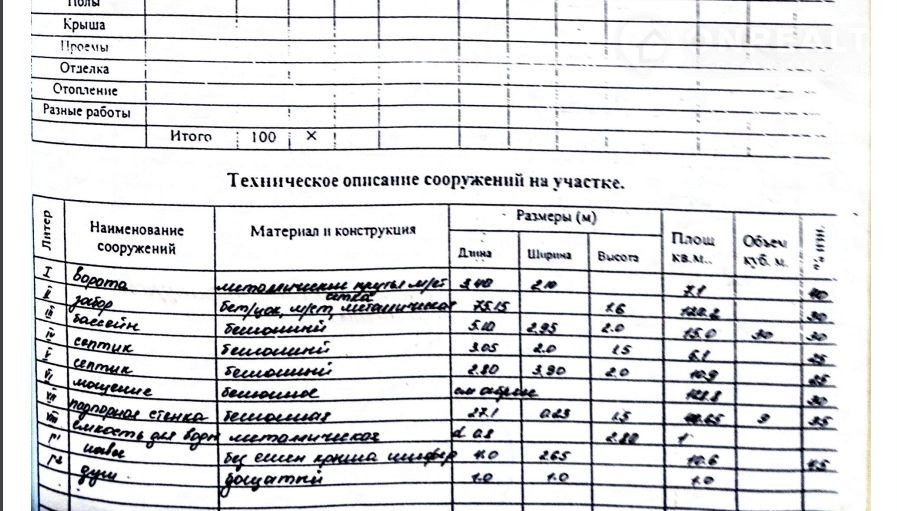 Полы
Крыша
Проемы
Отделка
Отопление
Разные работы
Итого 100 ×
Техническое описание сооружений на участке.
Литер Наименование сооружений Материал и конструкция Размеры (м) Площ кв.м.. Объем куб. м. % изн.
Длина Ширина Высота
I ворота металические м/р сетка 3.40 2.10 7.1 40
II забор бет/цок, м/ст, металическая 75.15 1.6 120.2 30
III бассейн бетонный 5.10 2.95 2.0 15.0 30 30
IV септик бетонный 3.05 2.0 1.5 6.1 25
V септик бетонный 2.80 3.90 2.0 10.9 25
VI мощение бетонное 128.8 30
VII подпорная стенка бетонная 27.1 0.23 1.5 40.65 9 35
VIII емкость для воды металическая d 0.8 2.80 1
Г1 навес без стен крыша шифер 4.0 2.65 10.6 45
Г2 душ дощатый 1.0 1.0 1.0